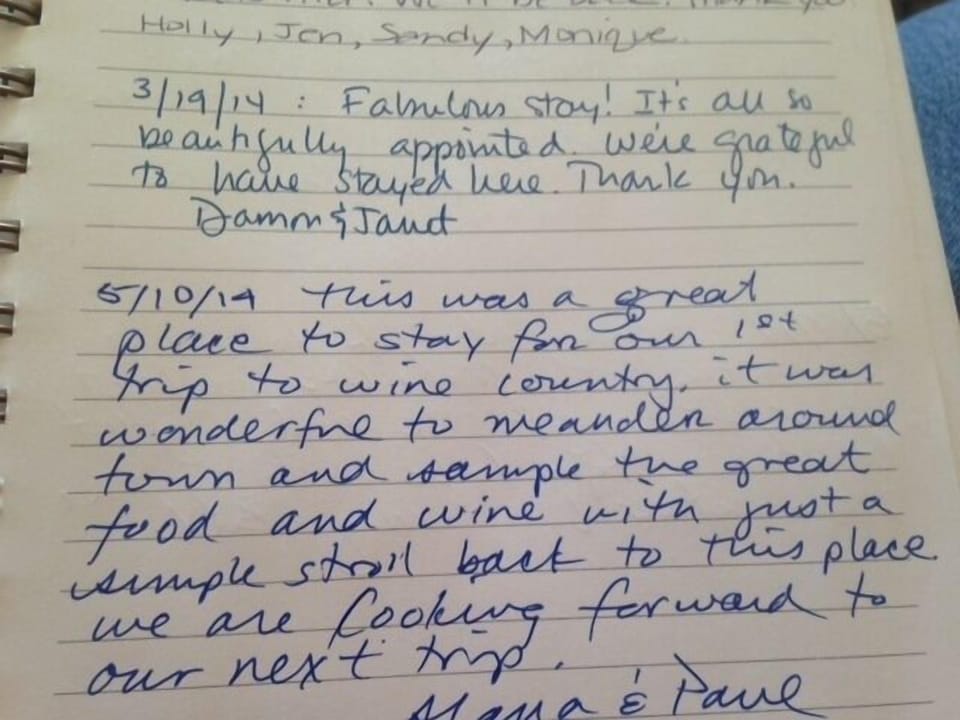 Thank you
Holly, Jen, Sandy, Monique.
3/19/14 : Fabulous stay! It's all so
beautifully appointed. We're grateful
to have stayed here. Thank you.
& Janet
5/10/14 this was a great
place to stay for our 1st
trip to wine country. it was
wonderful to meander around
town and sample the great
food and wine with just a
simple stroll back to this place
we are looking forward to
our next trip.
& Paul